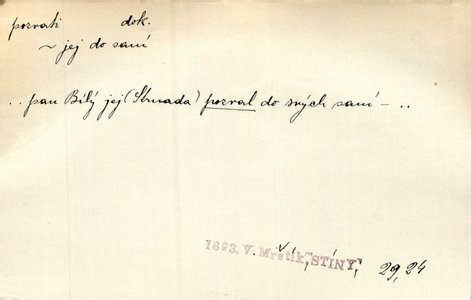 pozvati dok.
~ jej do saní
.. pan Bílý jej (Strnada) pozval do svých saní – ..
1893, V. Mrštík, „STÍNY", 29, 24